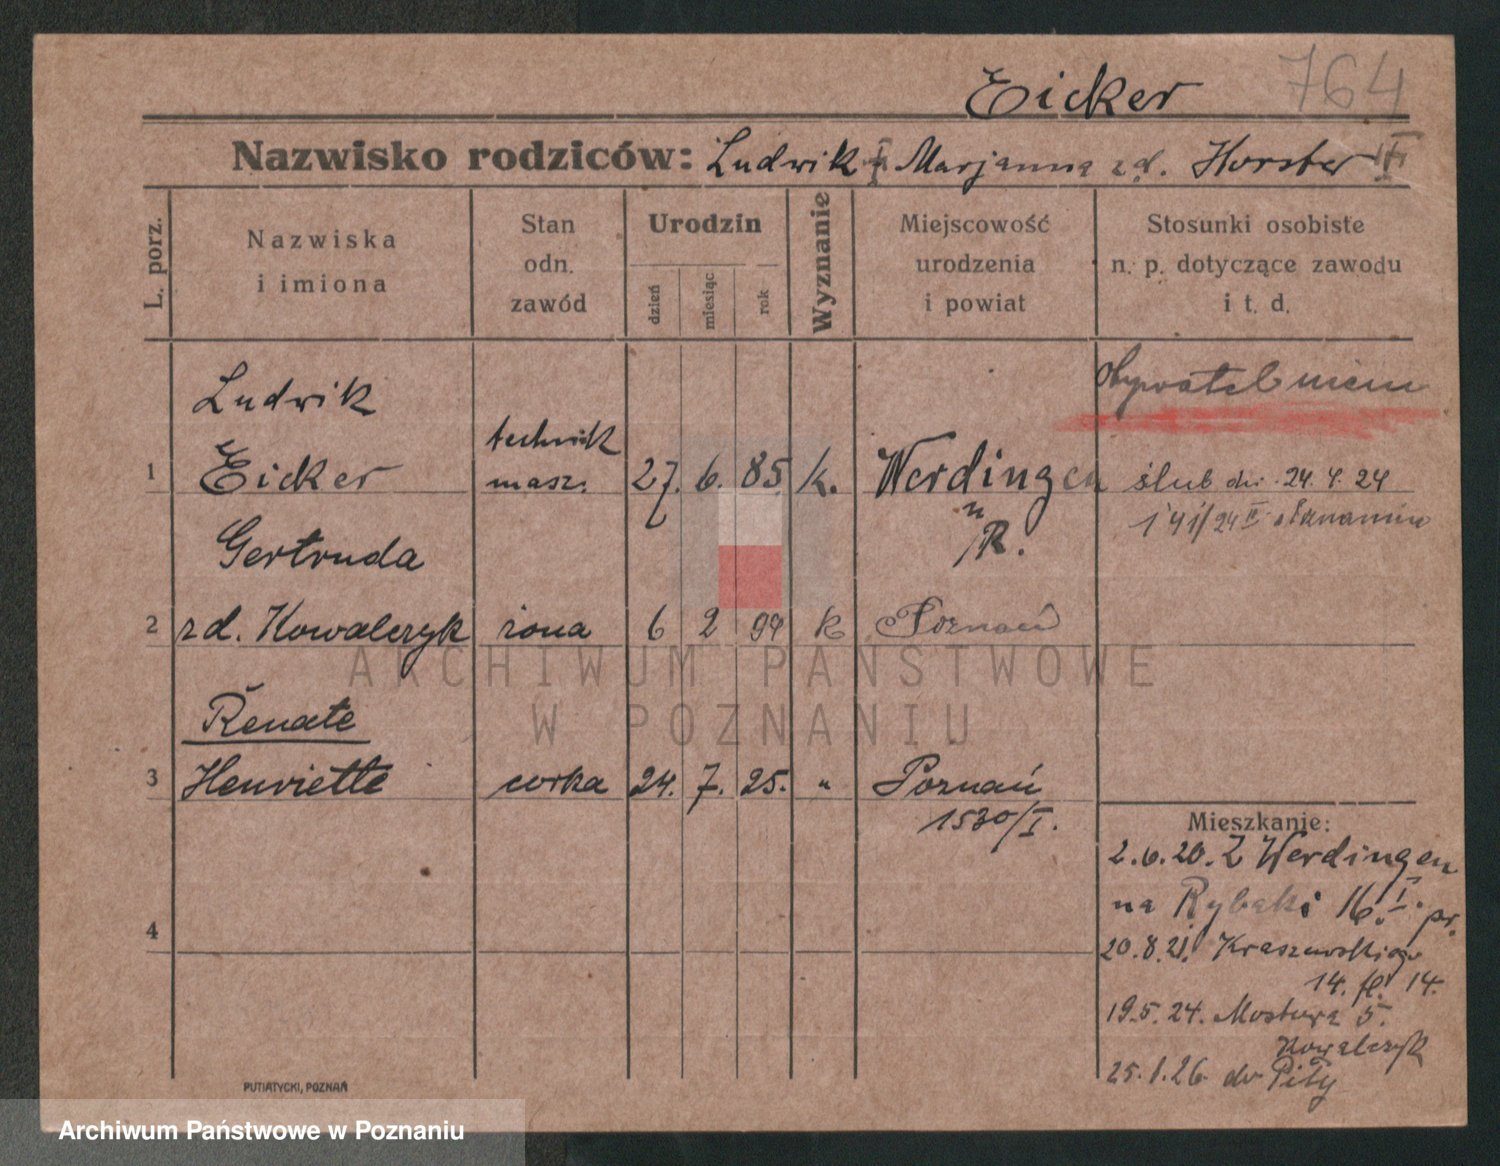 Eicker 764
Nazwisko rodziców: Ludwik I Marjanna zd. Horster
L. porz.
Nazwiska i imiona
Stan odn. zawód
Urodzin
dzień
miesiąc
rok
Wyznanie
Miejscowość urodzenia i powiat
Stosunki osobiste n. p. dotyczące zawodu i t. d.
Ludwik
obywatel niem
technik
1 Eicker masz. 27. 6. 85. k. Werdingen ślub dn. 24. 4. 24
n/R.
141/24 II
Gertruda
2 zd. Kowalczyk żona 6 2 99 k Poznań
Renate
3 Henriette corka 24. 7. 25. " Poznań
1530/I.
Mieszkanie:
2.6.20. Z Werdingen
na Rybaki 16. I. pr.
4
20.8.21. Kraszewskiego
14. 14.
19.5.24. Mostowa 5.
Kowalczyk
25.1.26. do Piły
PUTIATYCKI, POZNAŃ
ARCHIWUM PAŃSTWOWE
W POZNANIU
Archiwum Państwowe w Poznaniu